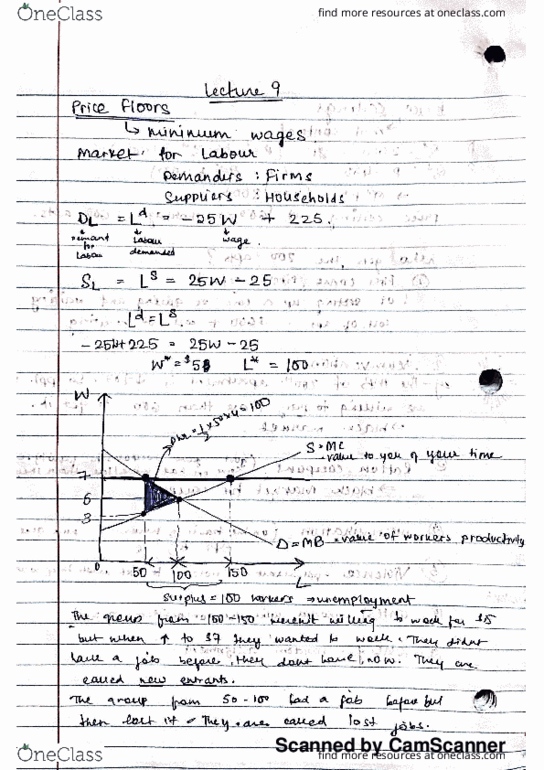 OneClass
find more resources at oneclass.com
Lecture 9
Price floors
↳ minimum wages
Market for Labour
Demanders : Firms
Suppliers : Households
DL = Lᵈ = -25W + 225
demand for Labour
Labour demanded
wage
SL = Lˢ = 25W - 25
Lᵈ = Lˢ
-25W + 225 = 25W - 25
W* = $5 L* = 100
W
DWL = ½ × 50 × 4 = 100
S = MC
value to you of your time
7
5
3
D = MB
value of workers productivity
0
50
100
150
L
Surplus = 100 workers ⇒ unemployment
The group from 100-150 weren't willing to work for $5
but when ↑ to $7 they wanted to work. They didnt
have a job before, they dont have now. They are
called new entrants.
The group from 50-100 had a job before but
then lost it. They are called lost jobs.
Scanned by CamScanner
OneClass
find more resources at oneclass.com